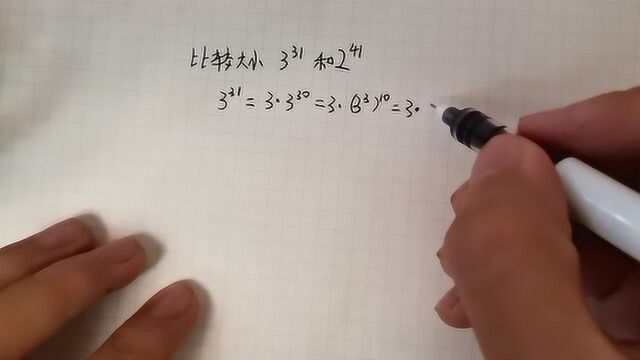 比较大小 3³¹ 和 2⁴¹
3³¹ = 3·3³⁰ = 3·(3³)¹⁰ = 3·